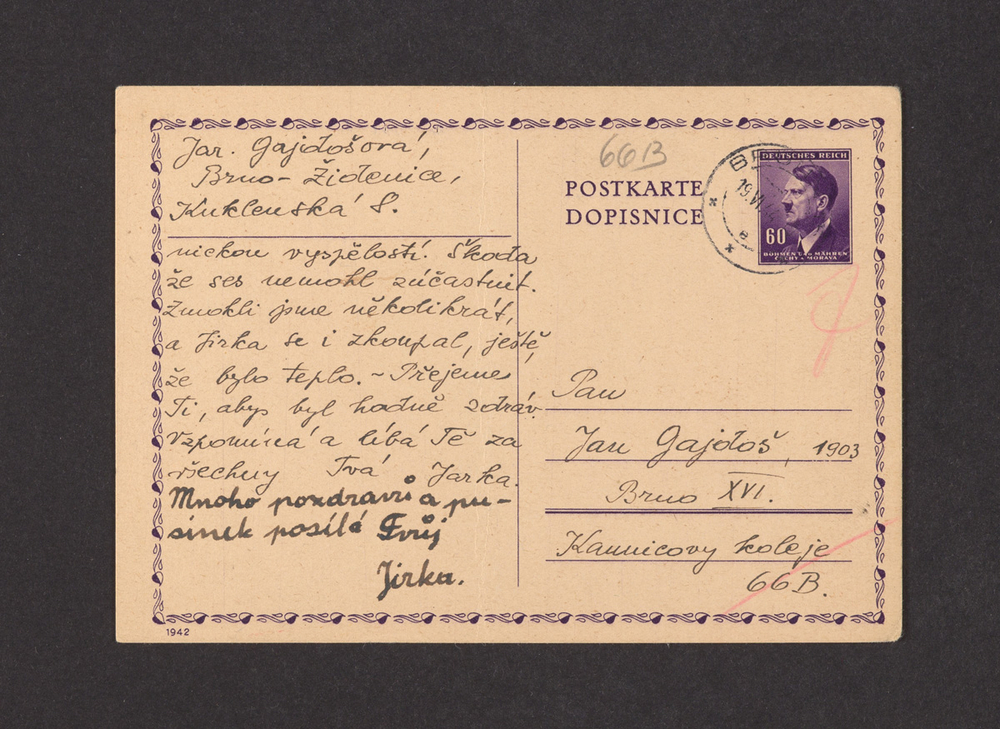 Jar. Gajdošová,
Brno-Židenice,
Kuklenská 8.
nickou vyspělostí. Škoda
že ses nemohl zúčastnit.
Zmokli jsme několikrát,
a Jirka se i zkoupal, ještě,
že bylo teplo. - Přejeme
Ti, abys byl hodně zdráv.
Vzpomíná a líbá Tě za
všechny Tvá Jarka.
Mnoho pozdravů a pu-
sinek posílá Tvůj
Jirka.
1942
66B
POSTKARTE
DOPISNICE
19.VI
e
DEUTSCHES REICH
60
BÖHMEN UND MÄHREN
ČECHY A MORAVA
Pan
Jan Gajdoš, 1903
Brno XVI.
Kaunicovy koleje
66B.